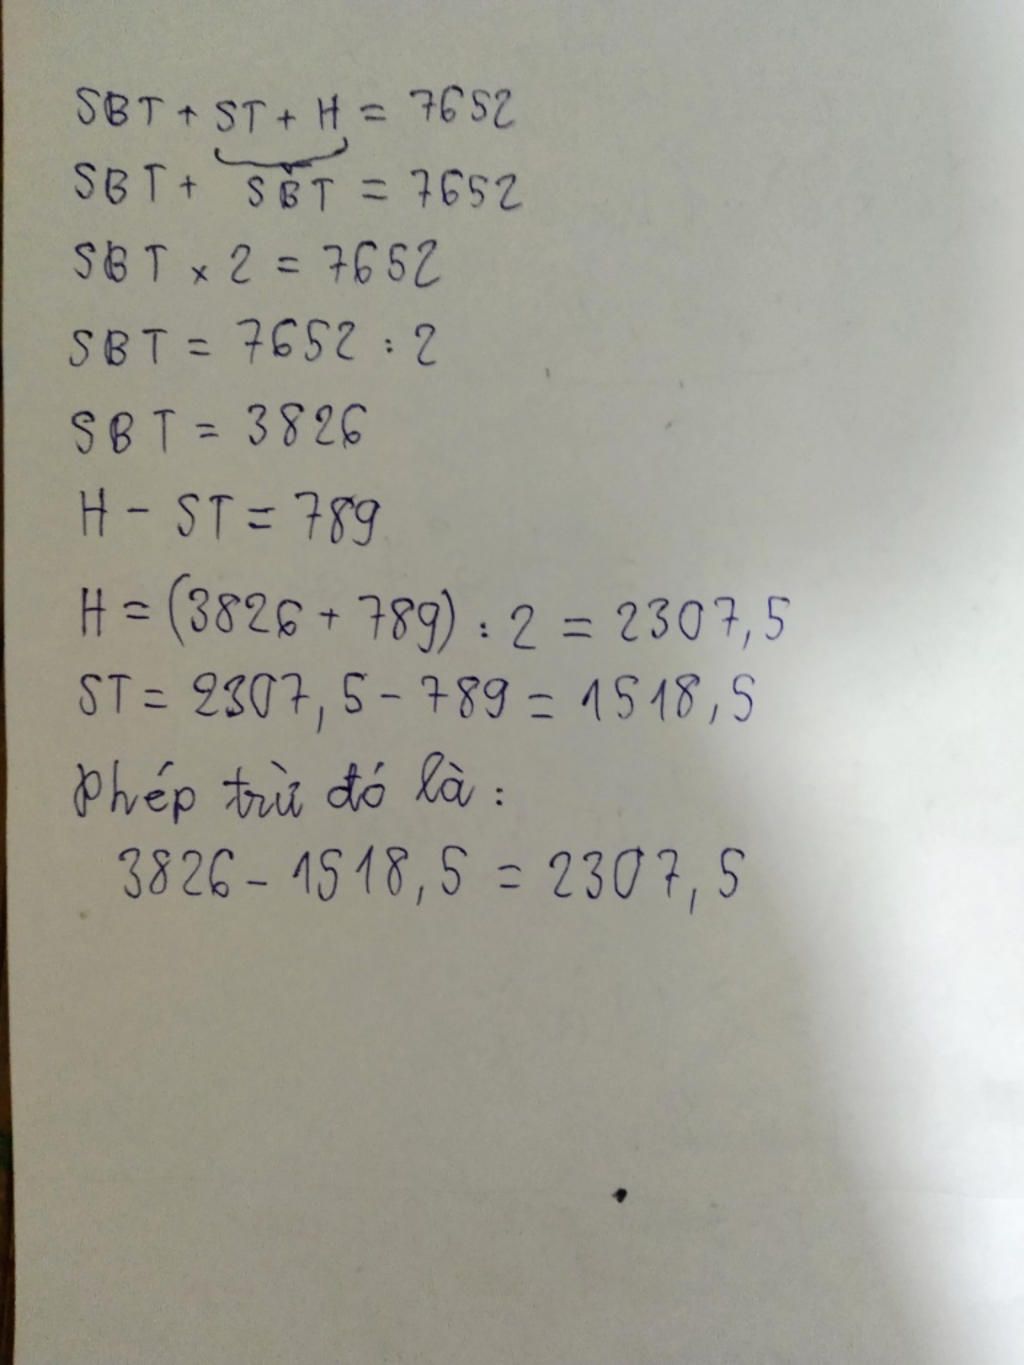 SBT + ST + H = 7652
SBT + SBT = 7652
SBT x 2 = 7652
SBT = 7652 : 2
SBT = 3826
H - ST = 789
H = (3826 + 789) : 2 = 2307,5
ST = 2307,5 - 789 = 1518,5
Phép trừ đó là:
3826 - 1518,5 = 2307,5